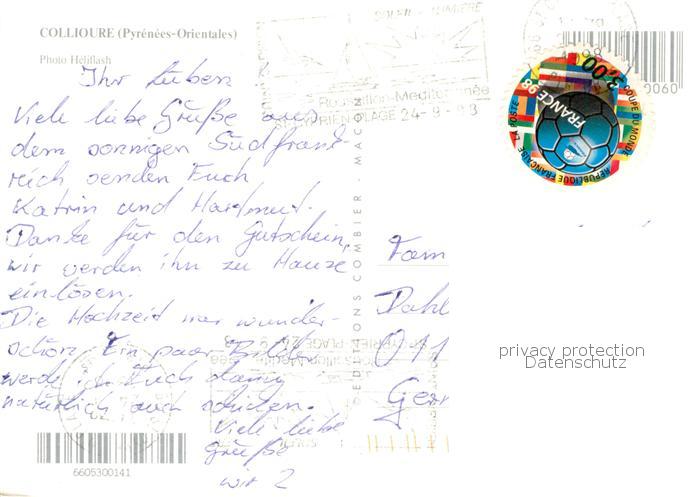 COLLIOURE (Pyrénées-Orientales)
Photo Héliflash
Ihr Lieben
Viele liebe Grüße aus
dem sonnigen Südfrank-
reich senden Euch
Katrin und Hartmut.
Danke für den Gutschein,
wir werden ihn zu Hause
einlösen.
Die Hochzeit war wunder-
schön. Ein paar Bilder
werde ich Euch
natürlich auch schicken.
Viele liebe
Grüße
wir 2
6605300141
SOLEIL - LUMIERE
Roussillon-Mediterranée
CYPRIEN PLAGE 24-9-98
EDITIONS COMBIER - MACON
3,00
FRANCE 98
COUPE DU MONDE
REPUBLIQUE FRANÇAISE LA POSTE
0060
Fam
Dahl
011
Ger
privacy protection
Datenschutz